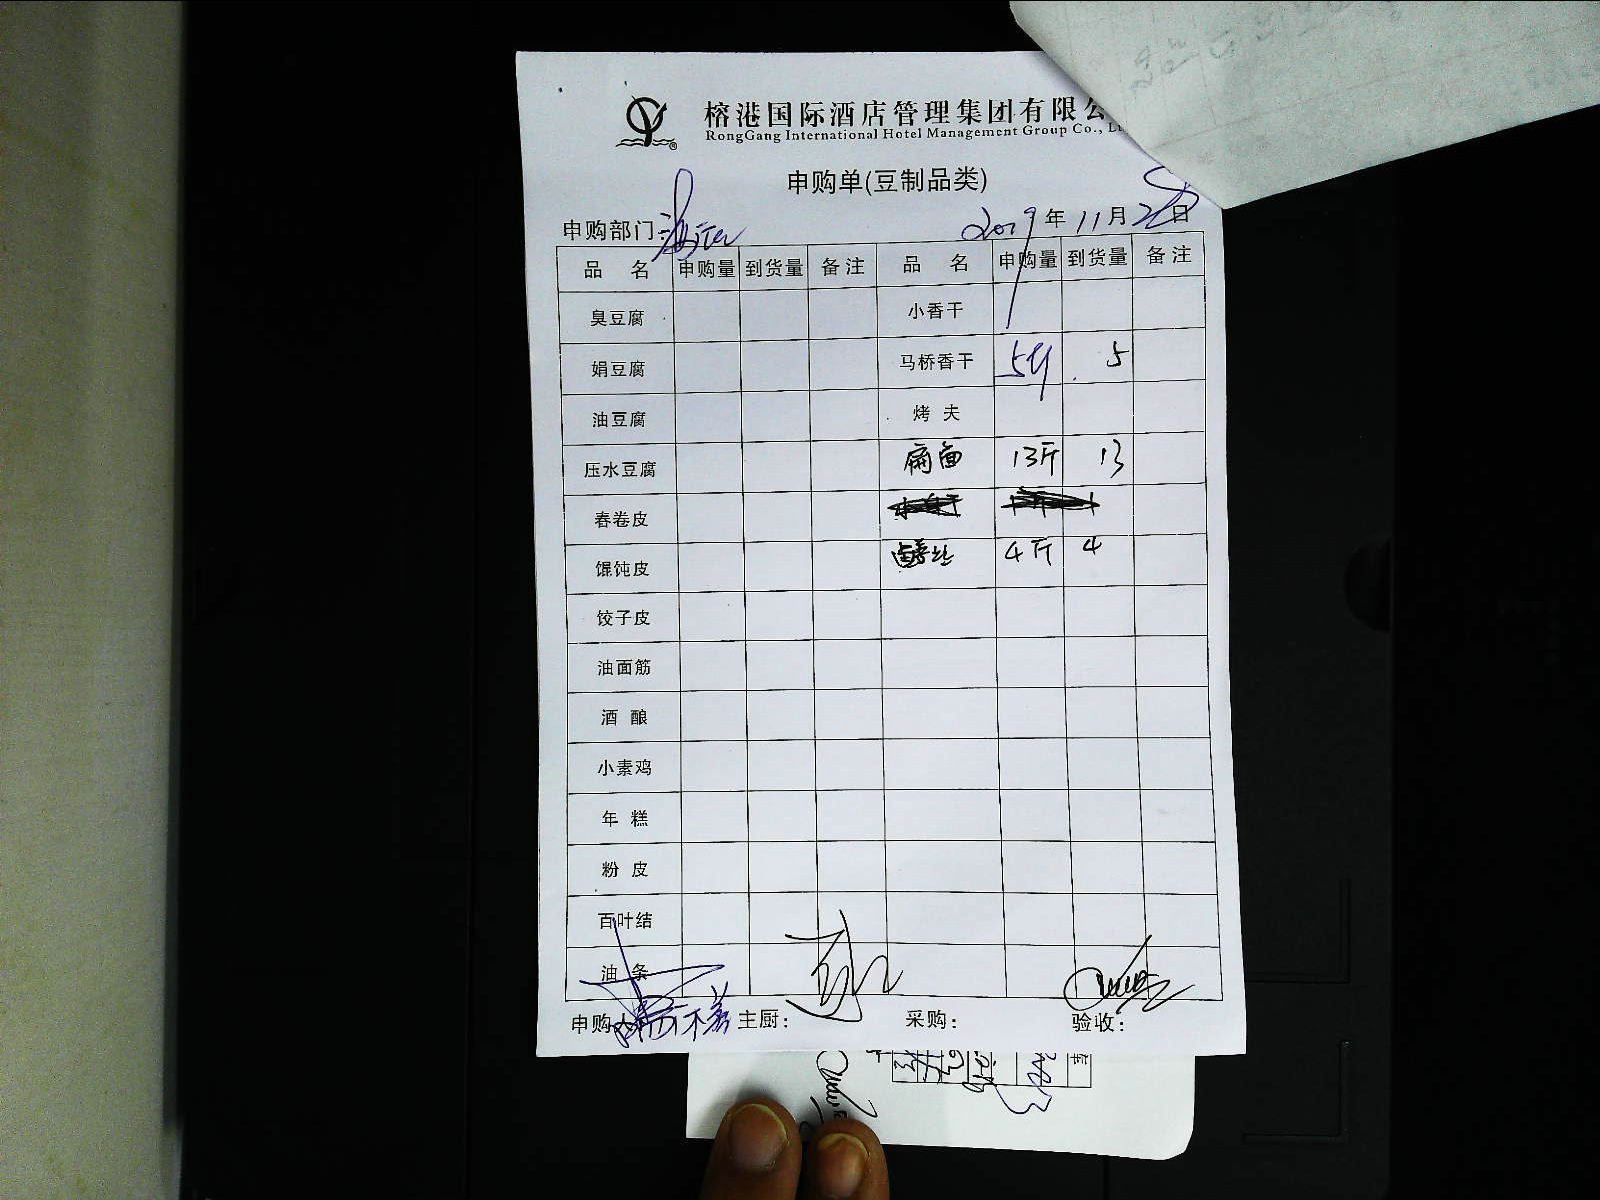 榕港国际酒店管理集团有限公
RongGang International Hotel Management Group Co., L
申购单(豆制品类)
申购部门: 2019年11月28日
品名 申购量 到货量 备注 品名 申购量 到货量 备注
臭豆腐 小香干
娟豆腐 马桥香干 5斤 5
油豆腐 烤夫
压水豆腐 扁面 13斤 13
春卷皮
馄饨皮 丝 4斤 4
饺子皮
油面筋
酒酿
小素鸡
年糕
粉皮
百叶结
油条
申购人 主厨: 采购: 验收: